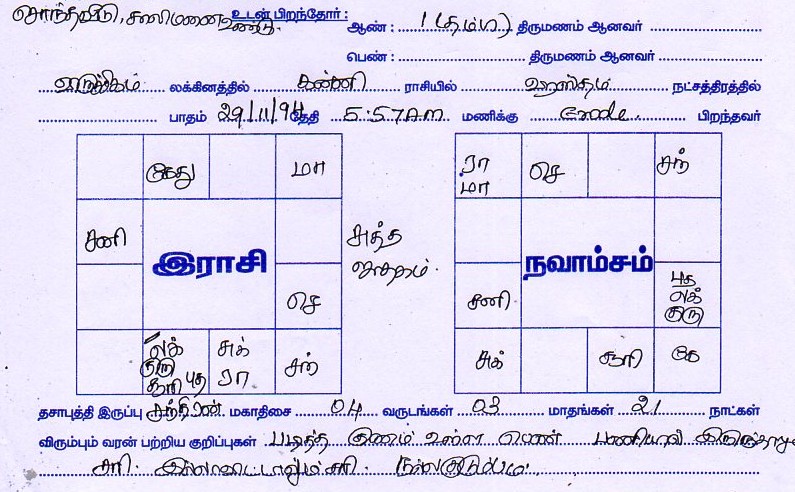 சொந்தவீடு, காலிமனை உண்டு. உடன் பிறந்தோர் : ஆண் : 1 (தம்பி) திருமணம் ஆனவர்
பெண் : திருமணம் ஆனவர்
விருச்சிகம் லக்கினத்தில் கன்னி ராசியில் ஹஸ்தம் நட்சத்திரத்தில்
பாதம் 29/11/94 தேதி 5:57 A.m மணிக்கு Erode. பிறந்தவர்
கேது மா
சனி
இராசி
செ
லக் குரு சூரி புத சுக் ரா சந்
அத்த
ஜாதகம்.
ரா மா செ சந்
நவாம்சம்
சனி புத லக் குரு
சுக் சூரி கே
தசாபுத்தி இருப்பு சந்திரன் மகாதிசை 04 வருடங்கள் 03 மாதங்கள் 21 நாட்கள்
விரும்பும் வரன் பற்றிய குறிப்புகள் படித்த குணம் உள்ள பெண் பணியில் இருந்தாலும்
சரி. இல்லாவிட்டாலும் சரி. நல்ல குடும்பம்.